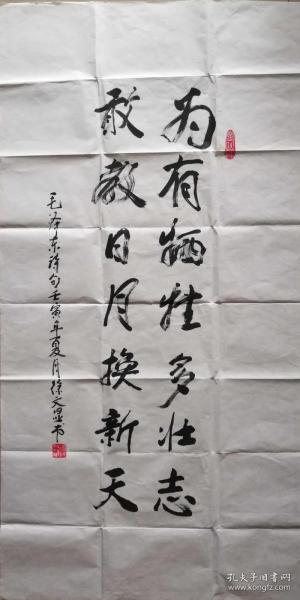 为有牺牲多壮志
敢教日月换新天
毛泽东诗句壬寅年夏月徐文昱书
孔夫子旧书网
book.kongfz.com